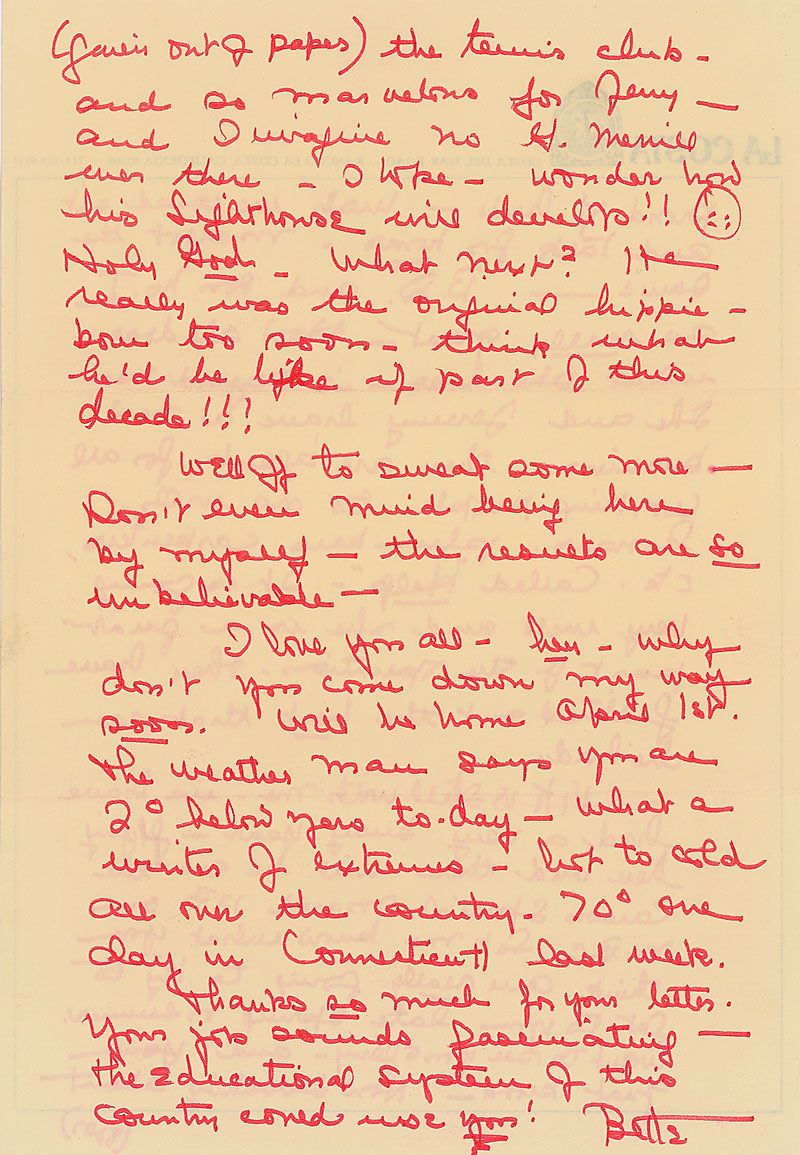 out of paper) the tennis club -
and so marvelous for Jerry —
and I imagine no G. Merrill
ever there - I hope - wonder how
his Lighthouse will develop!!
Holy God - What next? He
really was the original hippie -
born too soon - think what
he'd be like if part of this
decade!!!
Well off to sweat some more —
Don't even mind being here
by myself - the results are so
unbelievable —
I love you all - hey - why
don't you come down my way
soon. Will be home April 1st.
The weather man says you are
2° below zero to-day - what a
winter of extremes - hot to cold
all over the country - 70° one
day in Connecticut last week.
Thanks so much for your letter.
Your job sounds fascinating —
the educational system of this
country could use you! Bette
LA COSTA